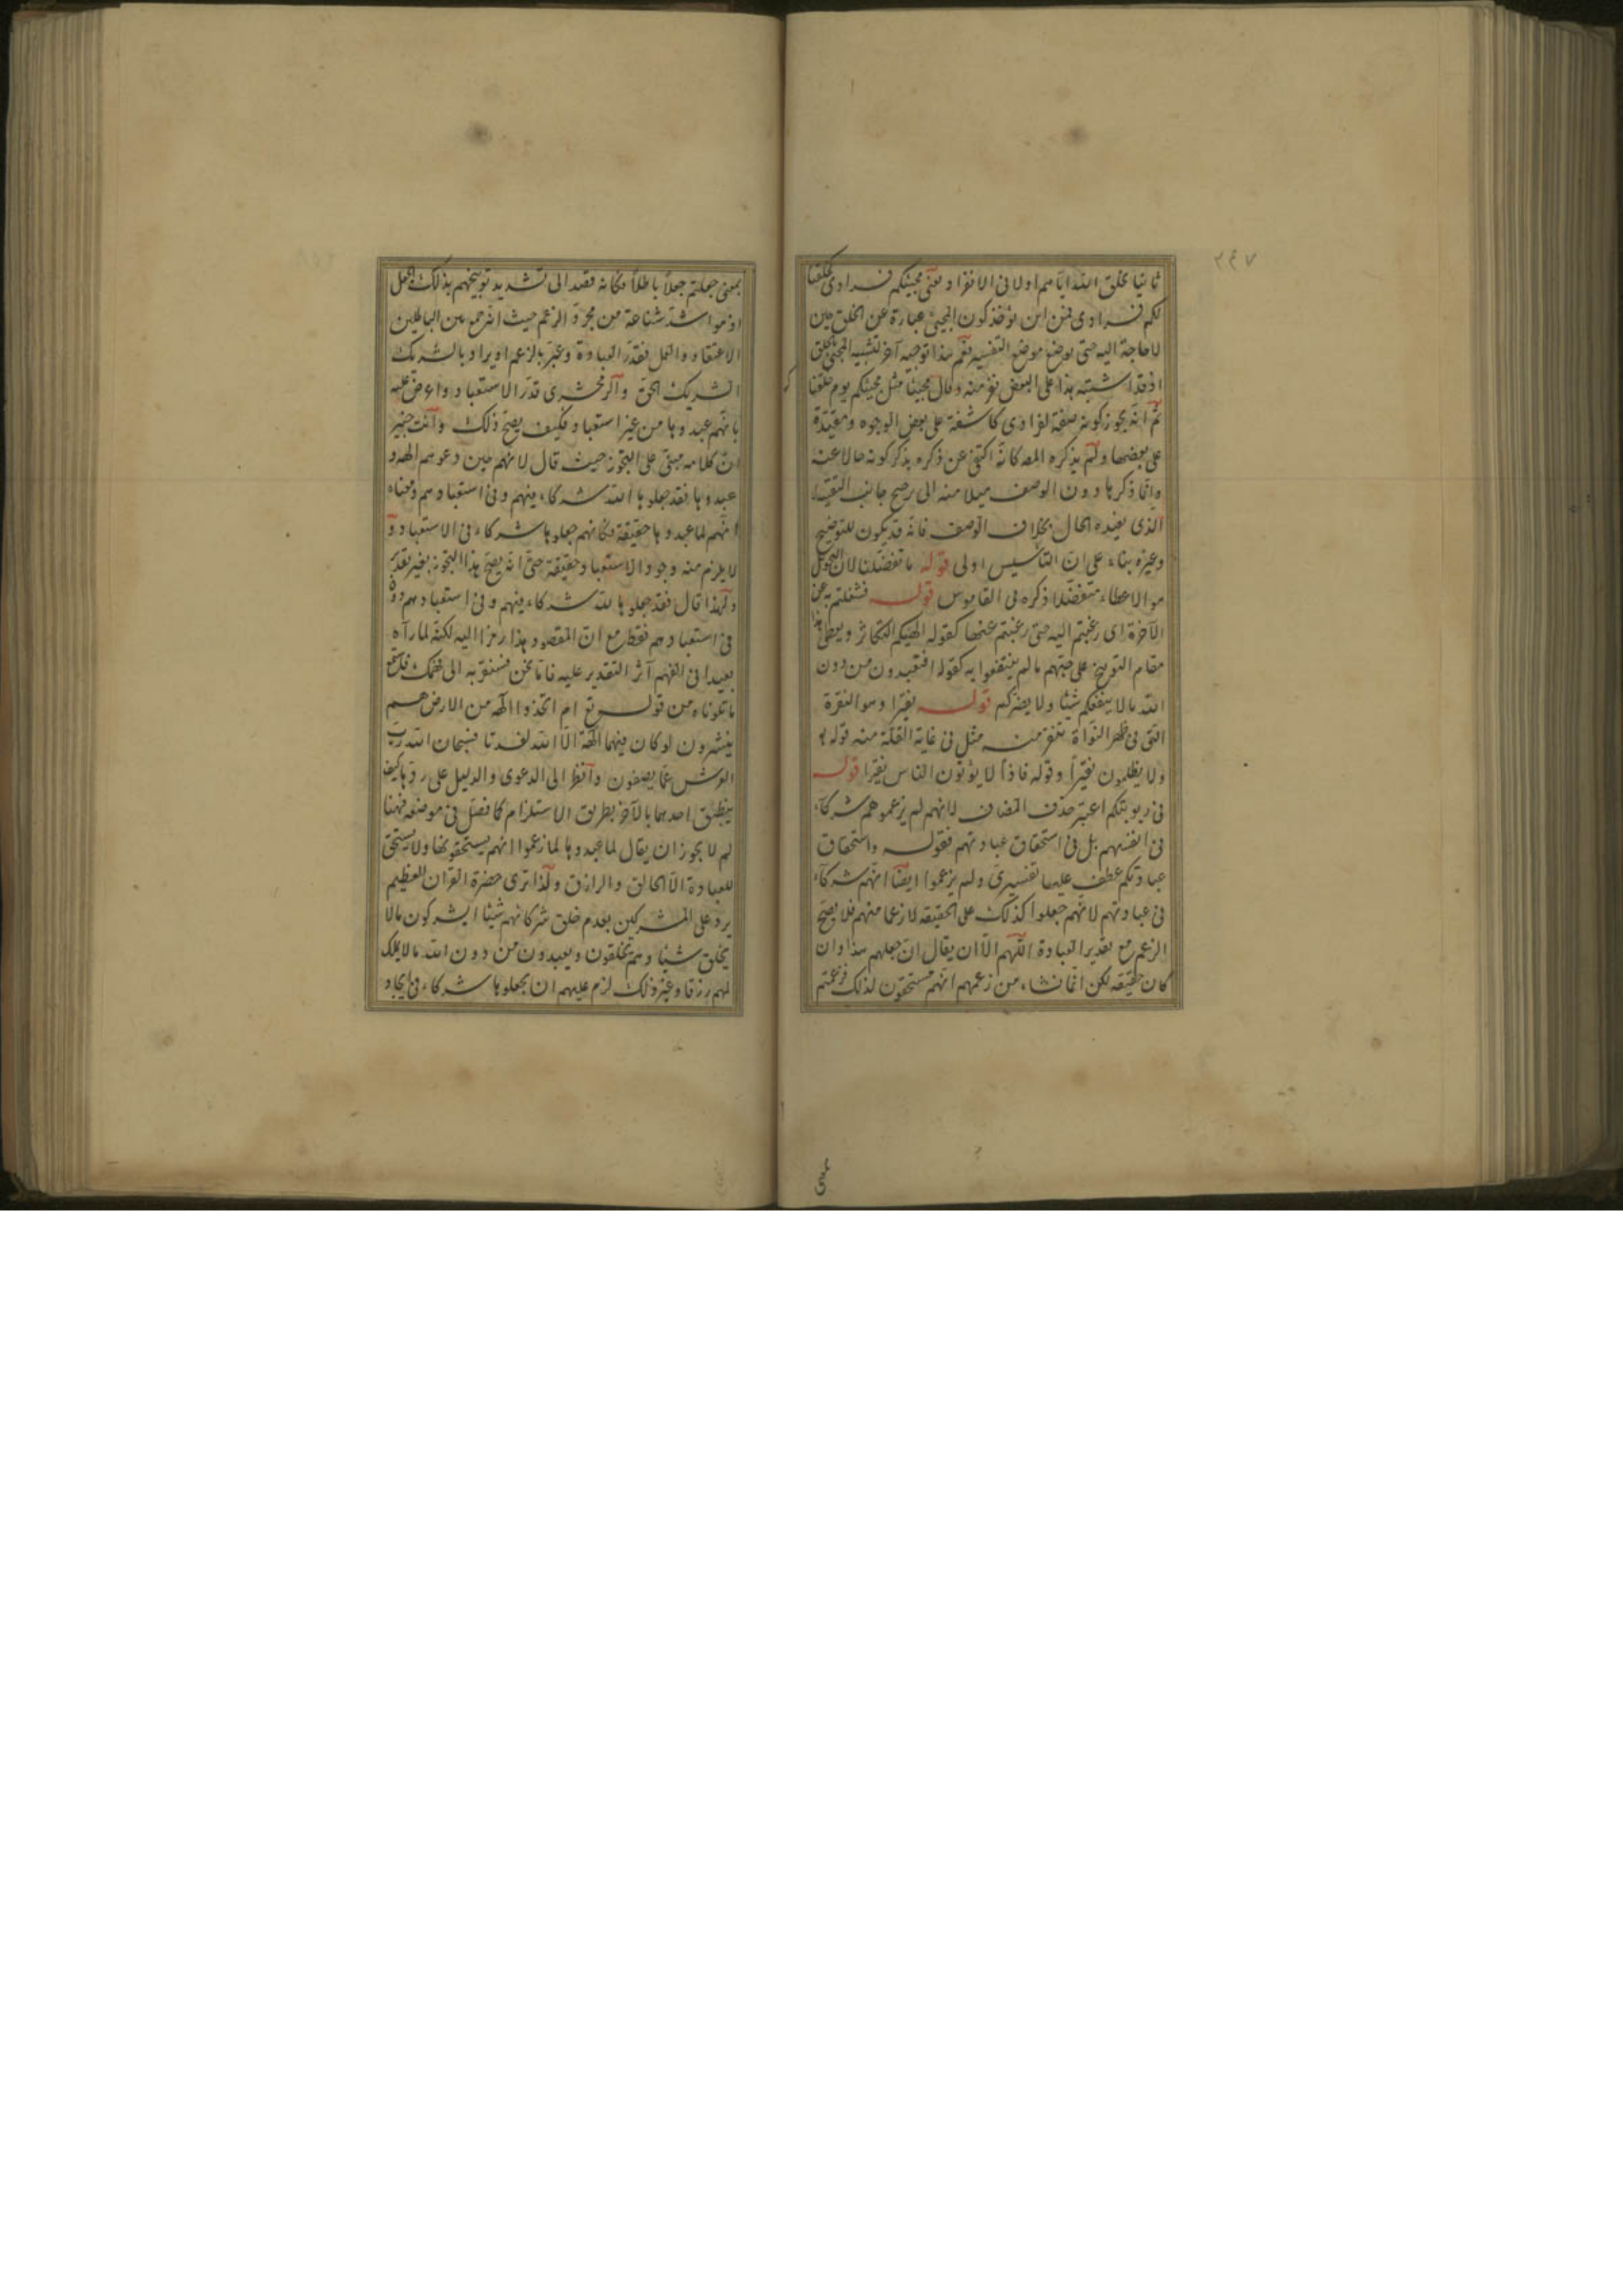 ٢٤٧
ثانيا بخلق الله اياهم اولا فى الانفراد يعنى مجيئكم فرادى كخلقنا
لكم فرادى فمن اين يؤخذ كون المجيئ عبارة عن الخلق حين
لا حاجة اليه حتى يوضع موضع التفسير نعم هذا توجيه آخر لتشبيه المجيئ بالخلق
اذ قد اشتبه هذا على البعض نفر منه وقال مجيئا مثل مجيئكم يوم خلقنا
ثم انه يجوز كونه صفة لفرادى كاشفة على بعض الوجوه ومقيدة
على بعضها ولم يذكره المص كانه اكتفى عن ذكره بذكر كونه حالا عنه
وانما ذكرها دون الوصف ميلا منه الى ترجيح جانب التقييد
الذى يفيده الحال بخلاف الوصف فانه قد يكون للتوضيح
وغيره بناء على ان التأسيس اولى قوله ما تفضلنا لان التخويل
هو الاعطاء متفضلا ذكره فى القاموس قوله فشغلتم به عن
الآخرة اى رغبتم اليه حتى رغبتم عنها كقوله الهيكم التكاثر ويعطى هذا
مقام التوبيخ على حبهم ما لم ينتفعوا به كقوله افتعبدون من دون
الله ما لا ينفعكم شيئا ولا يضركم قوله نقيرا وهو النقرة
التى فى ظهر النواة تنقر منه مثل فى غاية القلة منه قوله
ولا يظلمون نقيراً وقوله فاذاً لا يؤتون الناس نقيرا قوله
فى ربوبتكم اعتبر حذف المضاف لانهم لم يزعموهم شركاء
فى انفسهم بل فى استحقاق عبادتهم فقوله واستحقاق
عبادتكم عطف عليها تفسيرى ولم يزعموا ايضا انهم شركاء
فى عبادتهم لانهم جعلوا كذلك على الحقيقه لا زعما منهم فلا يصح
الزعم مع تقدير العبادة اللهم الا ان يقال ان جعلهم هذا وان
كان حقيقه لكن انما نشاء من زعمهم انهم مستحقون لذلك فزعمتم
بمعنى جعلتم جعلاً باطلاً فكانه قصد الى تشديد توبيخهم بذلك الجعل
اذ هو اشد شناعة من مجرد الزعم حيث انه جمع بين الباطلين
الاعتقاد والعمل فقدّر العبادة وعبّر بالزعم او يراد بالشريك
الشريك الحق والزمخشرى قدّر الاستعباد واعترض عليه
بانهم عبدوها من غير استعباد فكيف يصح ذلك وانت خبير
ان كلامه مبنى على التجوز حيث قال لانهم حين دعوهم الهة و
عبدوها فقد جعلوها لله شركاء فيهم وفى استعبادهم ومعناه
انهم لما عبدوها حقيقة فكانهم جعلوها شركاء فى الاستعباد و
لا يلزم منه وجود الاستعباد حقيقة حتى انه يصح هذا التجوز بغير تقدير
ولهذا قال فقد جعلوها لله شركاء فيهم وفى استعبادهم دون
فى استعبادهم فقط مع ان المقصود هذا رمزا اليه لكنه لما رآه
بعيدا فى الفهم آثر التقدير عليه فاما نحن فسنقربه الى فهمك فاستمع
ما تلوناه من قوله تع ام اتخذوا آلهة من الارض هم
ينشرون لو كان فيهما آلهة الا الله لفسدتا فسبحان الله رب
العرش عما يصفون وانظر الى الدعوى والدليل على ردها كيف
ينطبق احدهما بالآخر بطريق الاستلزام كما فصل فى موضعه فههنا
لم لا يجوز ان يقال لما عبدوها لما زعموا انهم يستحقونها ولا يستحق
للعبادة الا الخالق والرازق ولذا ترى حضرة القران العظيم
يرد على المشركين بعدم خلق شركائهم شيئا ايشركون ما لا
يخلق شيئا وهم يخلقون ويعبدون من دون الله ما لا يملك
لهم رزقا وغير ذلك لزم عليهم ان يجعلوها شركاء فى ايجاد